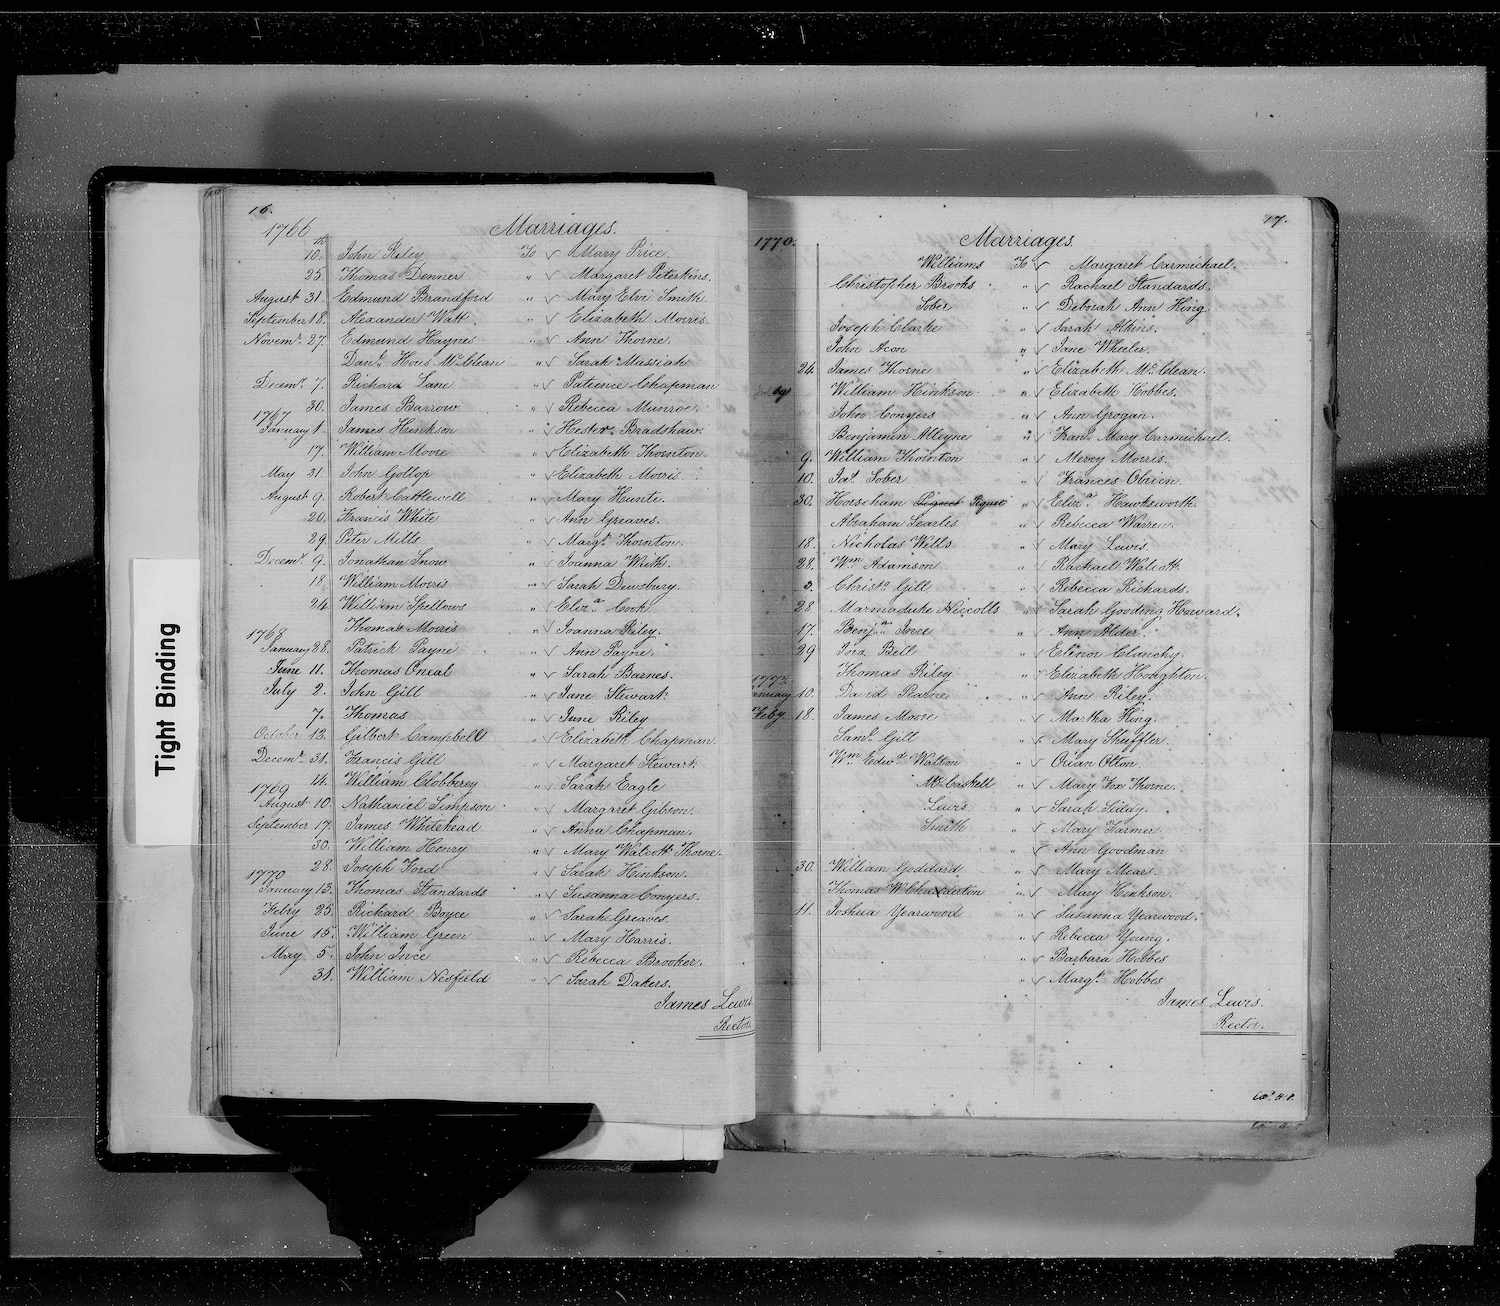 16.
1766 Marriages.
10. John Riley To Mary Price.
25. Thomas Denner " Margaret Peterkins.
August 31. Edmund Brandford " Mary Elvi Smith
September 18. Alexander Watt. " Elizabeth Morris.
Novemr. 27. Edmund Haynes " Ann Thorne.
Danl. Hoes McClean " Sarah Massiah
Decemr. 7. Richard Lane " Patience Chapman
30. James Barrow " Rebecca Munroe.
1767
January 1. James Hinkson " Hester Bradshaw.
17. William Moore " Elizabeth Thornton.
May 31. John Gollop " Elizabeth Morris.
August 9. Robert Cattlewell " Mary Hunte.
20. Francis White " Ann Greaves.
29. Peter Mille " Margt. Thornton.
Decemr. 9. Jonathan Snow " Joanna With.
18. William Morris " Sarah Dewsbury.
24. William Spellows " Eliza. Cook
Thomas Morris " Joanna Riley.
1768
January 28. Patrick Payne " Ann Payne
June 11. Thomas Oneal " Sarah Barnes.
July 2. John Gill " Jane Stewart.
7. Thomas " June Riley
October 13. Gilbert Campbell " Elizabeth Chapman.
Decemr. 31. Francis Gill " Margaret Stewart
14. William Clobberey " Sarah Eagle
1769
August 10. Nathaniel Simpson " Margaret Gibson.
September 17. James Whitehead " Anna Chapman.
30. William Henry " Mary Walcott Thorne.
28. Joseph Ford " Sarah Hinkson.
1770
January 13. Thomas Standards " Susanna Conyers.
Febry 25. Richard Boyce " Sarah Greaves.
June 15. William Green " Mary Harris.
May 5. John Ince " Rebecca Brooker.
31. William Nisfield " Sarah Dakers.
James Lewis
Rector
Tight Binding
17.
1770. Marriages.
Williams To Margaret Carmichael.
Christopher Brooks " Rachael Standards.
Sober " Deborah Ann King.
Joseph Clarke " Sarah Atkins.
John Acon " Jane Wheeler.
24. James Thorne " Elizabeth McClean.
William Hinkson " Elizabeth Hobbes.
John Conyers " Ann Grogan.
Benjamin Alleyne " Frans. Mary Carmichael.
9. William Thornton " Mercy Morris.
10. Jat. Sober " Frances Obrien.
30. Horseham Piquet " Eliza. Hawksworth.
Abraham Searles " Rebecca Warren.
18. Nicholas Wills " Mary Lewis.
28. Wm. Adamson " Rachael Walcott.
3. Christo. Gill " Rebecca Richards.
28 Marmaduke Niccolls " Sarah Gooding Howard.
17. Benja. Ince " Ann Alder.
29 Jna. Bell " Elinor Clanchy.
Thomas Riley " Elizabeth Houghton.
January 10. David Pearce " Ann Riley.
Feby 18. James Moore " Martha King.
Saml. Gill " Mary Sheffler.
Wm. Edwd. Walton " Orian Olton.
McCaskell " Mary Fox Thorne.
Lewis " Sarah Lilly.
Smith " Mary Farmer
" Ann Goodman
30. William Goddard " Mary Mears.
Thomas W. " Mary Hinkson.
11. Joshua Yearwood " Susanna Yearwood.
" Rebecca Young.
" Barbara Hobbes
" Margt. Hobbes
James Lewis.
Rector.